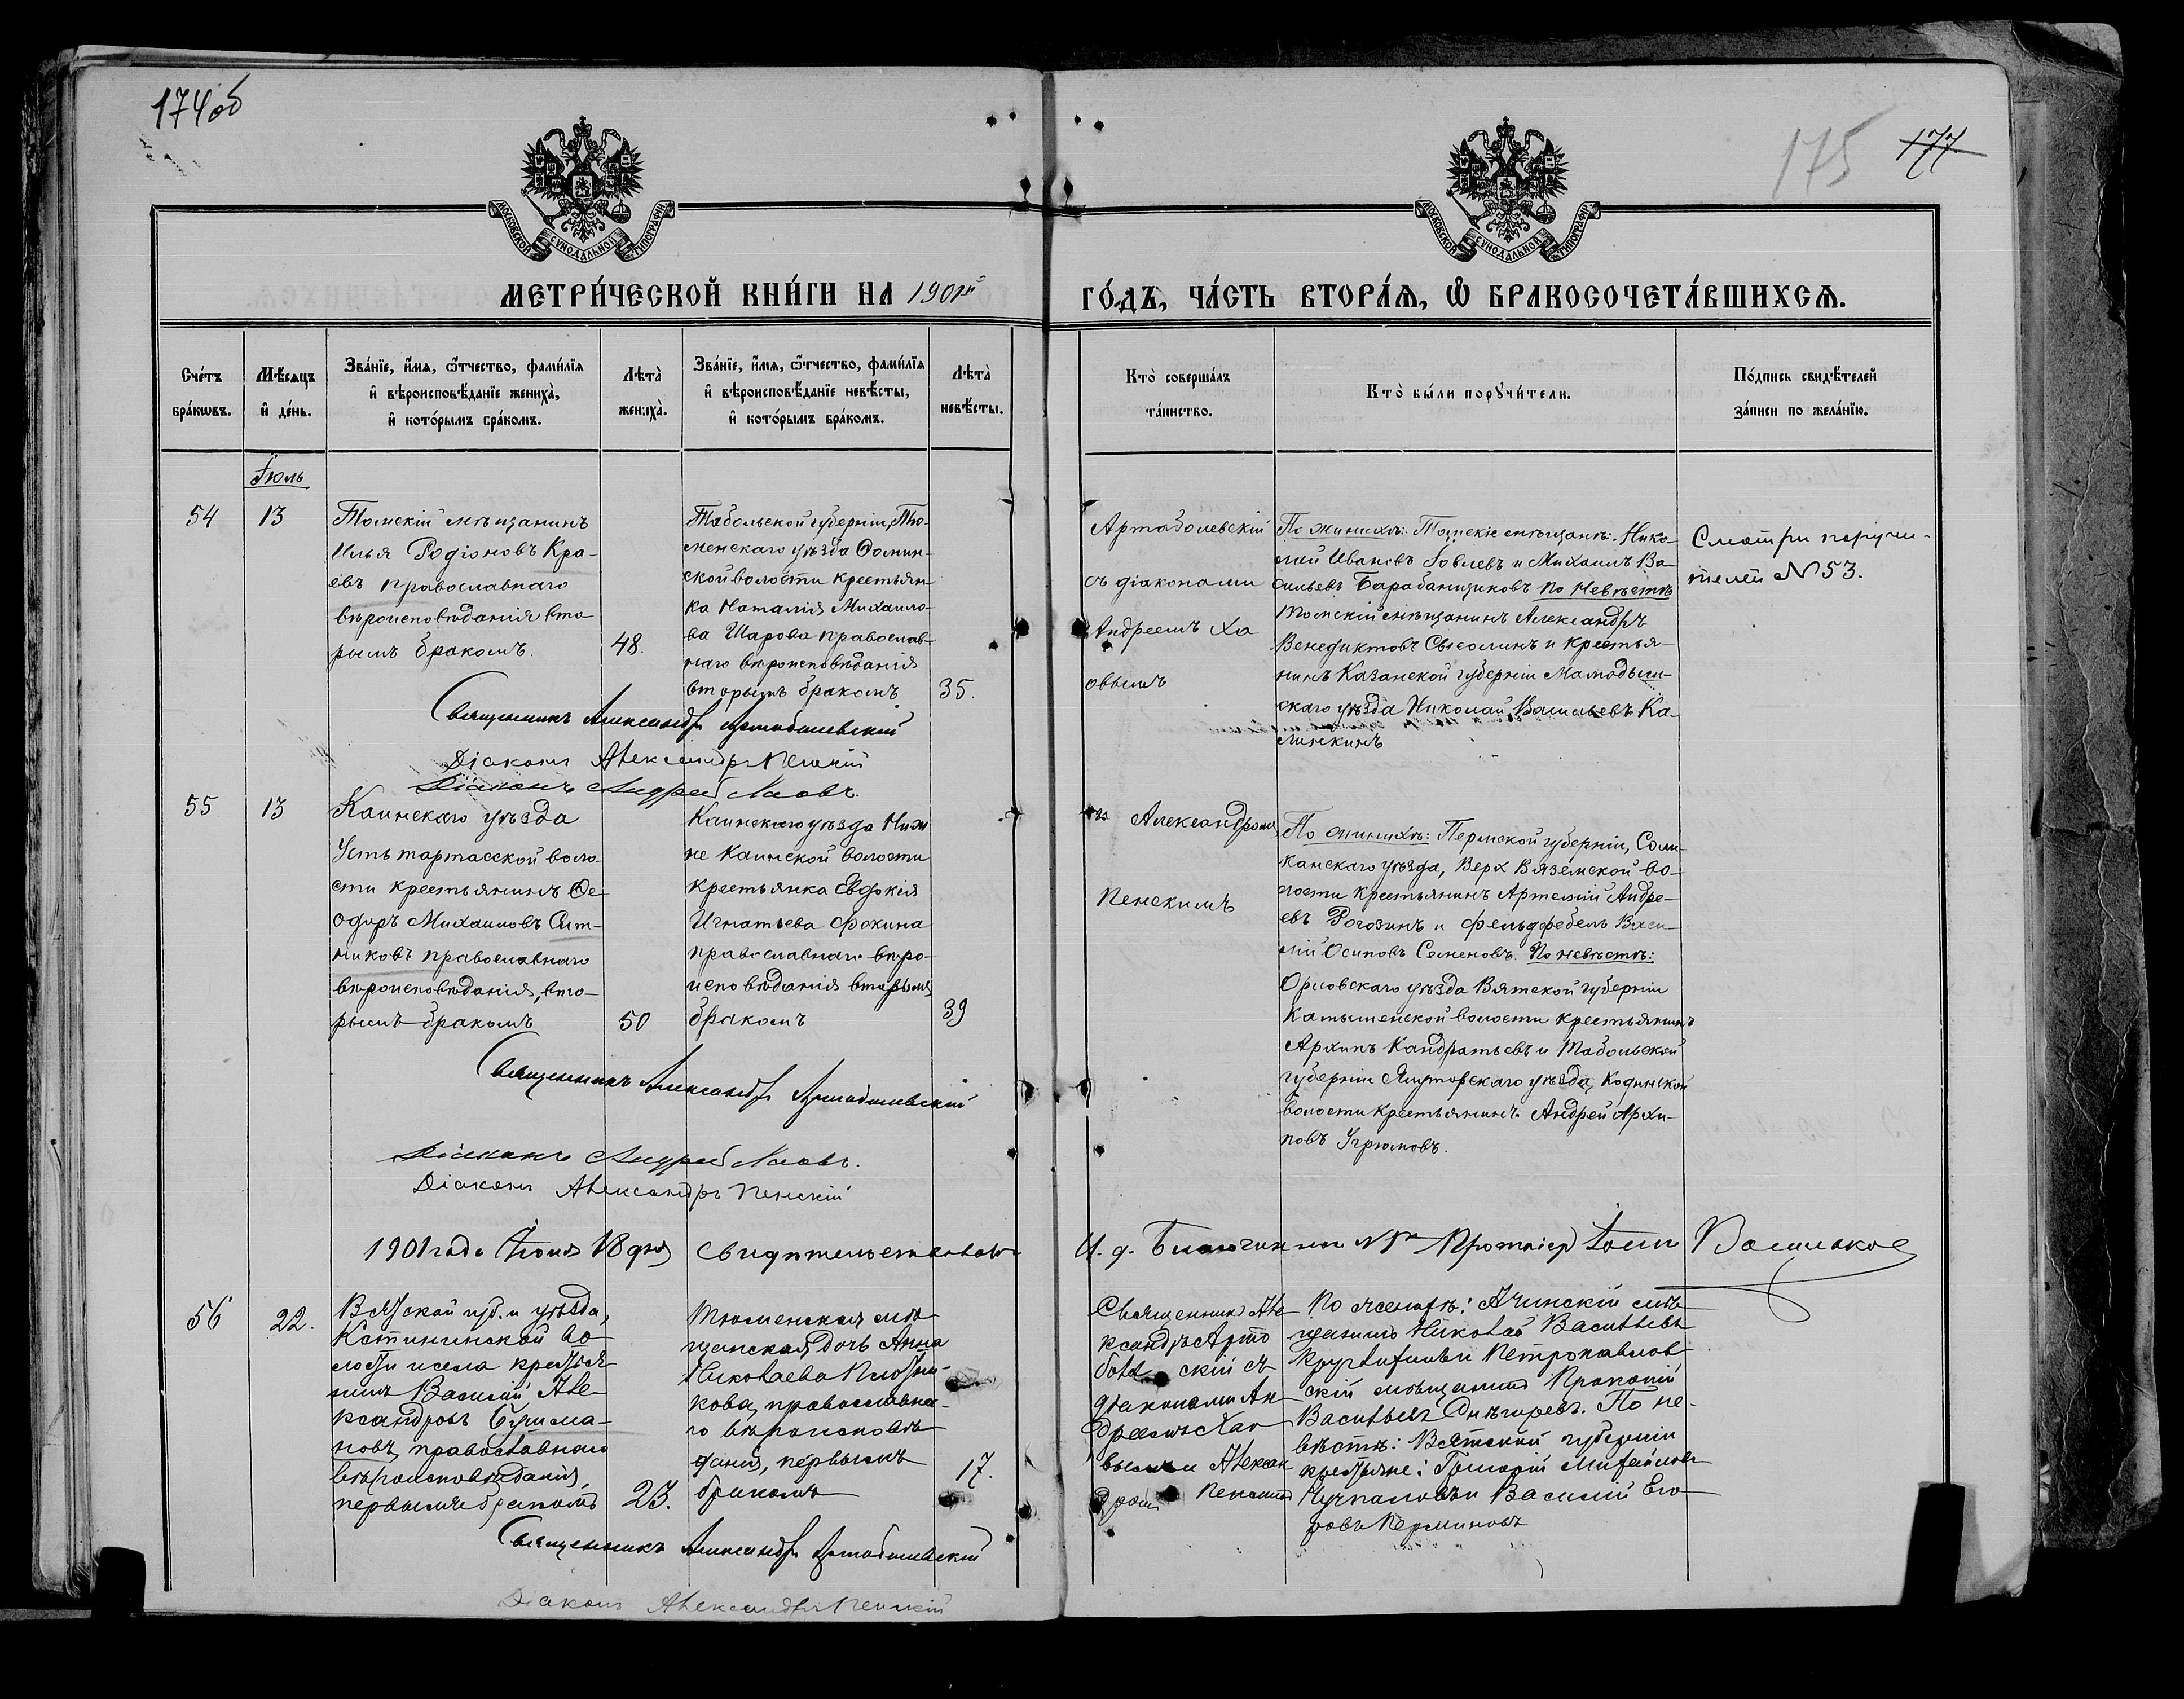 174об
175
177
МОСКОВСКОЙ СѴНОДАЛЬНОЙ ТИПОГРАФИИ
МОСКОВСКОЙ СѴНОДАЛЬНОЙ ТИПОГРАФИИ
МЕТРИ́ЧЕСКОЙ КНИ́ГИ НА 1901й
ГО́ДЪ, ЧА́СТЬ ВТОРА́Я, Ѽ БРАКОСОЧЕТА́ВШИХСЯ.
Сче́тъ
бра́кѡвъ.
Мѣ́сяцъ
и҆ де́нь.
Зва́нїе, и҆́мя, ѻ҆́тчество, фами́лїя
и҆ вѣроисповѣ́данїе жениха̀,
и҆ кото́рымъ бра́комъ.
Лѣта̀
жениха̀.
Зва́нїе, и҆́мя, ѻ҆́тчество, фами́лїя
и҆ вѣроисповѣ́данїе невѣ́сты,
и҆ кото́рымъ бра́комъ.
Лѣта̀
невѣ́сты.
Кто̀ соверша́лъ
та́инство.
Кто̀ бы́ли порꙋчи́тели.
По́дпись свидѣ́телей
за́писи по жела́нїю.
Іюль
54
13
Томскій мѣщанинъ
Илья Родіоновъ Кра-
евъ православнаго
вѣроисповѣданія вто-
рымъ бракомъ.
48.
Тобольской губерніи, Тю-
менскаго уѣзда Фомин-
ской волости крестьян-
ка Наталія Михайло-
ва Шарова православ-
наго вѣроисповѣданія
вторымъ бракомъ
35.
Артаболевскій
съ діаконами
Андреемъ Ха
овымъ
По женихѣ: Томскіе мѣщане: Нико-
лай Ивановъ Іовлевъ и Михаилъ Ва-
сильевъ Барабанщиковъ По Невѣстѣ
Томскій мѣщанинъ Александръ
Венедиктовъ и крестья-
нинъ Казанской губерніи Мамадыш-
скаго уѣзда Николай Васильевъ Ка-
линкинъ
Смотри поручи-
телей № 53.
Священникъ Александръ Артаболевскій
Діаконъ Александръ Пенскій
Діаконъ Андрей Хаовъ.
55
13
Каинскаго уѣзда
Усть тартасской воло-
сти крестьянинъ Ѳе-
одоръ Михаиловъ Сит-
никовъ православнаго
вѣроисповѣданія, вто-
рымъ бракомъ
50
Каинскаго уѣзда Ниж
не Каинской волости
крестьянка Евдокія
Игнатьева Фокина
православнаго вѣро-
исповѣданія вторымъ
бракомъ
39
Александромъ
Пенскимъ
По женихѣ: Пермской губерніи, Соли-
канскаго уѣзда, Верх Вяземской во-
лости крестьянинъ Артемій Андре-
евъ Рогозинъ и фельдфебель Васи-
лій Осиповъ Семеновъ. По невѣстѣ:
Орловскаго уѣзда Вятской губерніи
волости крестьянинъ
Архипъ Кандратьевъ и Тобольской
губерніи Ялуторскаго уѣзда, Кодинской
волости крестьянинъ Андрей Архи-
повъ Угрюмовъ.
Священникъ Александръ Артаболевскій
Діаконъ Андрей Хаовъ.
Діаконъ Александръ Пенскій
1901 года 18 дня свидѣтельствовалъ
И. д. Благочиннаго Протоіерей
56
22.
Вятской губ. и уѣзда,
во-
лости и села крестья-
нинъ Василій Але-
ксандровъ
православнаго
вѣроисповѣданія,
первымъ бракомъ
23.
Тюменская мѣ-
щанская дочь Анна
Николаева Плотни-
кова, православна-
го вѣроисповѣ-
данія, первымъ
бракомъ
17.
Священникъ Але-
ксандръ Арто
скій съ
діаконами Ан
дреемъ Хао
вымъ и Алексан
дромъ Пенскимъ
По женихѣ: Ачинскій мѣ-
щанинъ Николай Васильевъ
и Петропавлов
скій мѣщанинъ Прокопій
Васильевъ Снѣгиревъ. По не-
вѣстѣ: Вятской губерніи
крестьяне: Григорій Михайловъ
и Василій Его
ровъ Перминовъ
Священникъ Александръ Артаболевскій
Діаконъ Александръ Пенскій